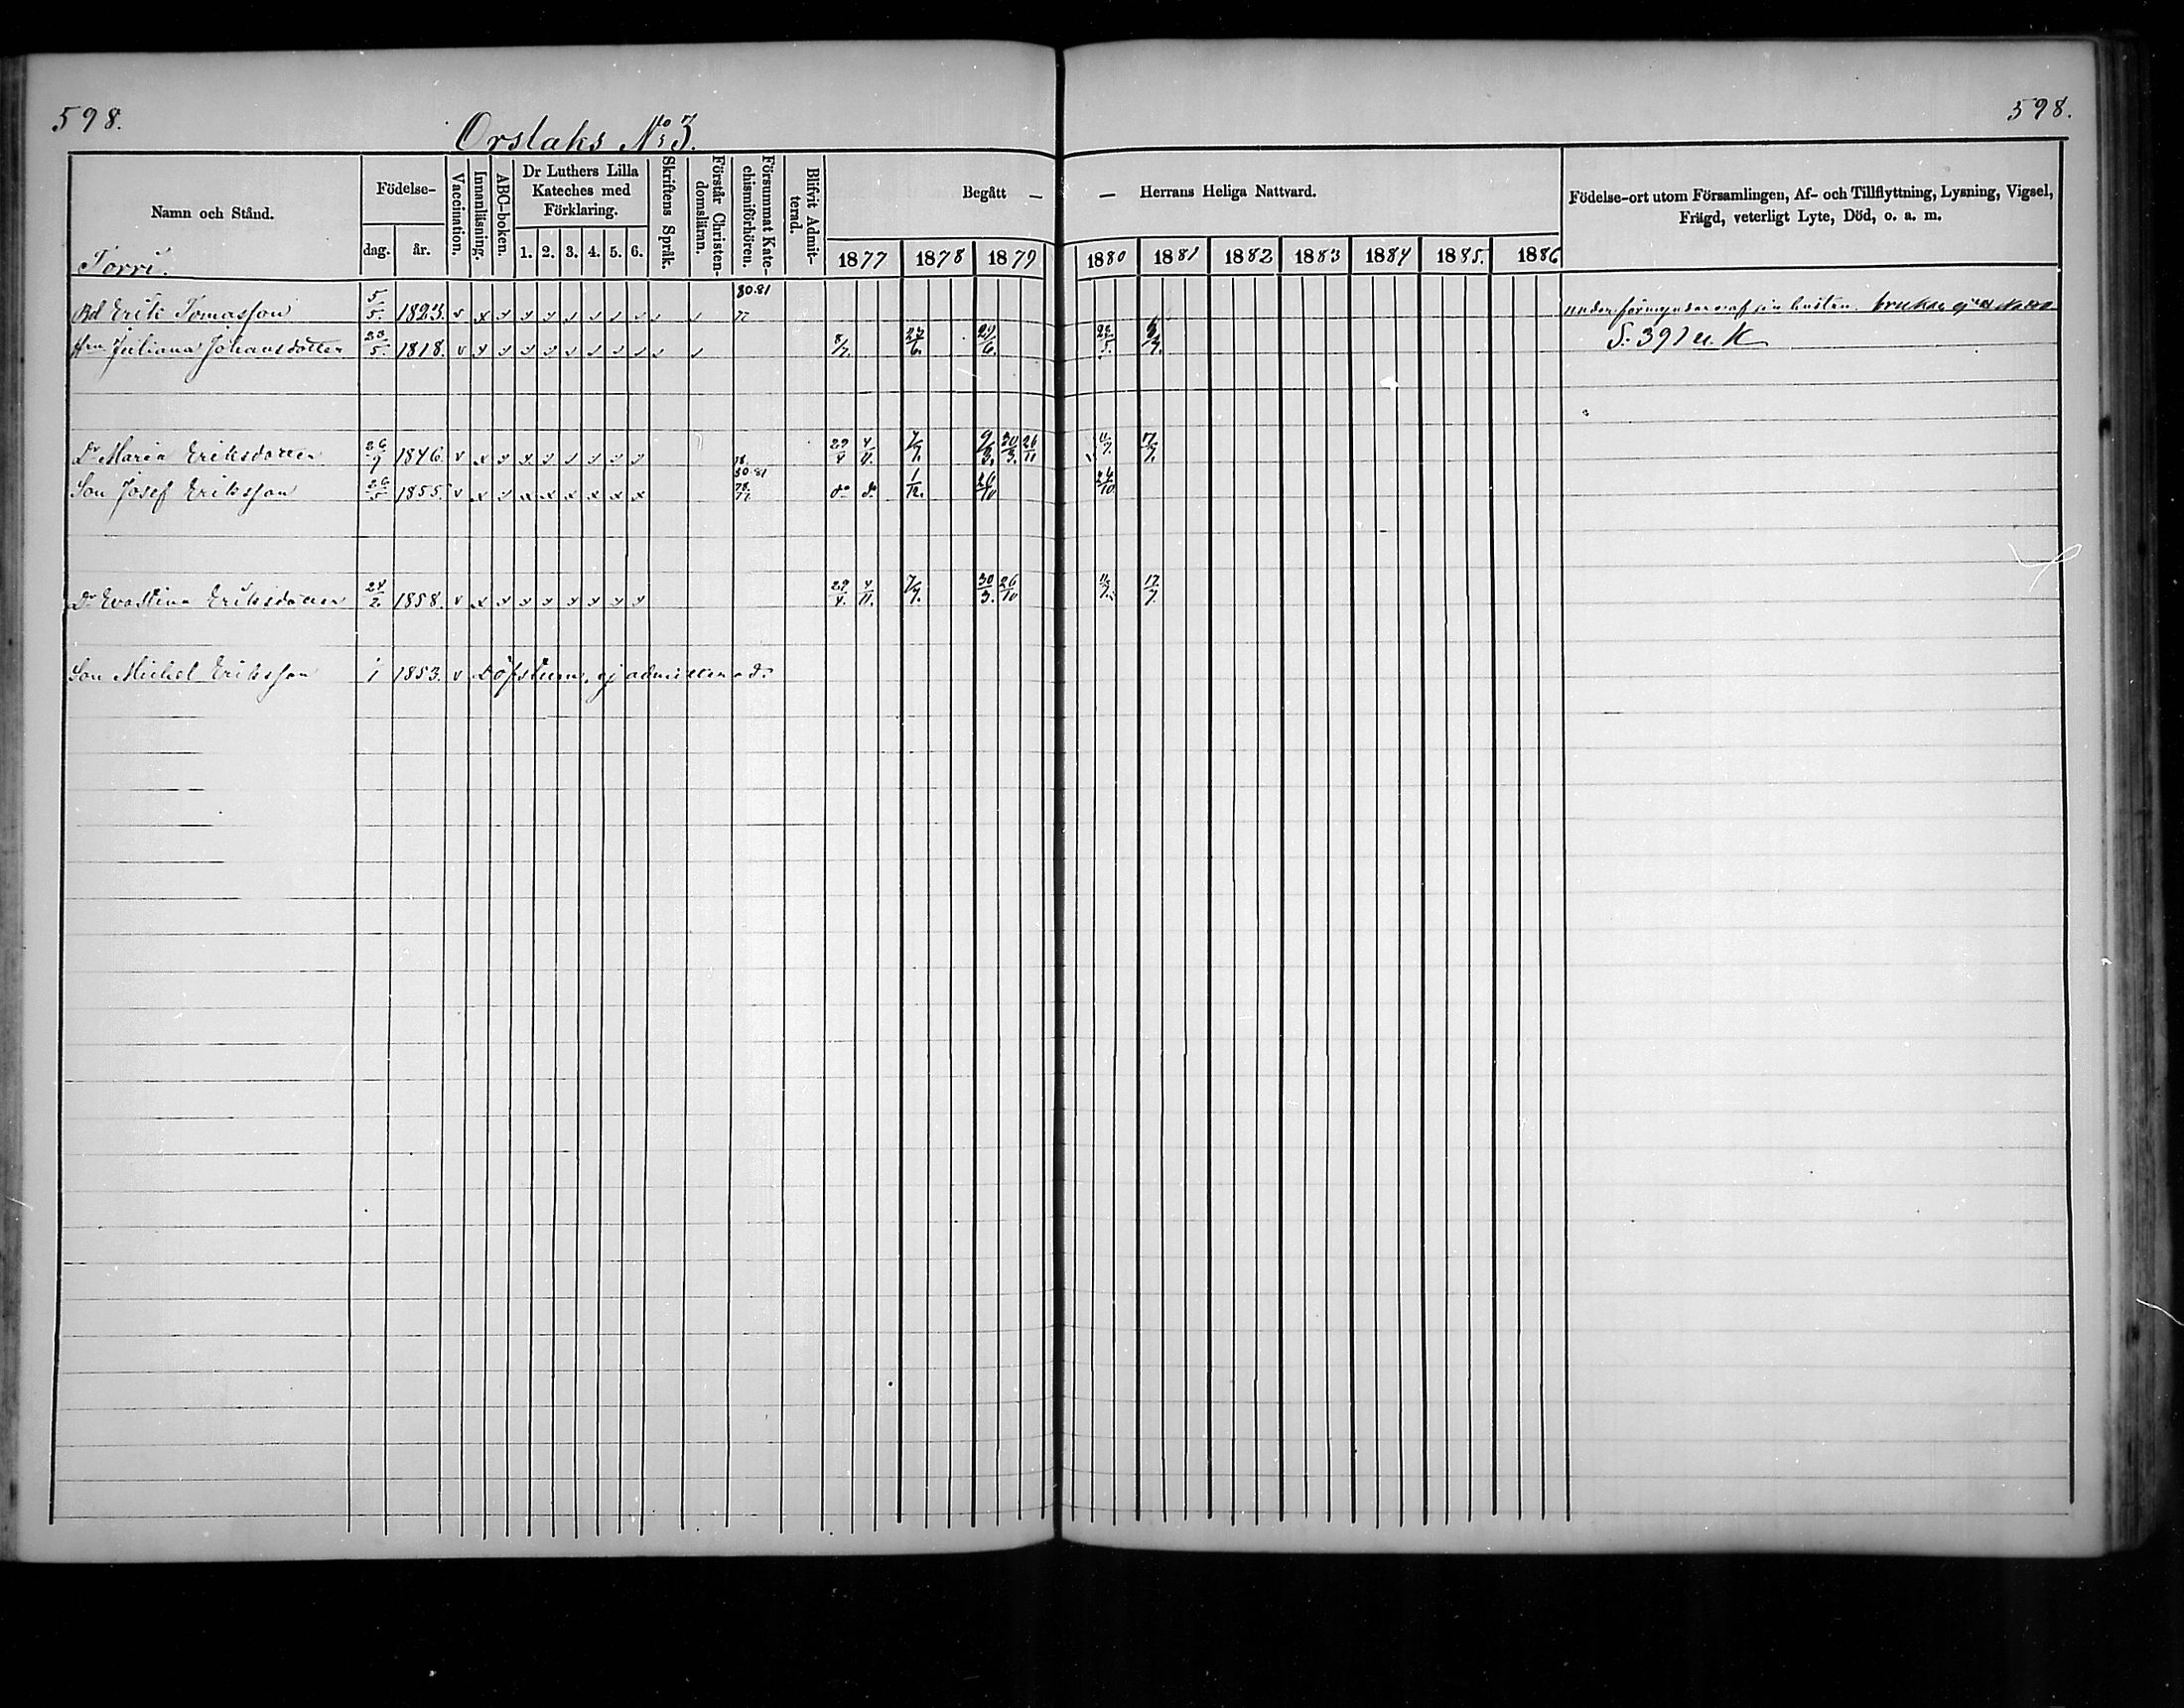 598.
598.
Orslaks No 3.
Namn och Stånd.
Födelse-
dag. år.
Vaccination.
Innanläsning.
ABC-boken.
Dr Luthers Lilla
Kateches med
Förklaring.
1. 2. 3. 4. 5. 6.
Skriftens Språk.
Förstår Christen-
domsläran.
Försummat Kate-
chismiförhören.
Blifvit Admit-
terad.
Begått —
— Herrans Heliga Nattvard.
1877 1878 1879 1880 1881 1882 1883 1884 1885. 1886
Födelse-ort utom Församlingen, Af- och Tillflyttning, Lysning, Vigsel,
Frägd, veterligt Lyte, Död, o. a. m.
Torri.
80.81
Bd Erik Tomasson 5/5. 1823. 77 under förmynderskaf
Hru Juliana Johansdotter 23/5. 1818. 8/7. 24/6. 24/6. S. 391 u. K
Dr Maria Eriksdotter 26/9 1846. 78. 29/4 4/11. 7/7. 9/3. 30/3. 26/11 11/7. 17/7.
80.81
Son Josef Eriksson 26/5 1855. 78. 77. do do 1/12. 26/10 24/10
Dr Evastina Eriksdotter 24/2. 1858. 29/4. 4/11. 7/7. 30/3. 26/10 11/7. 17/7.
Son Mickel Eriksson 1853. v Döfstum, ej admitterad.